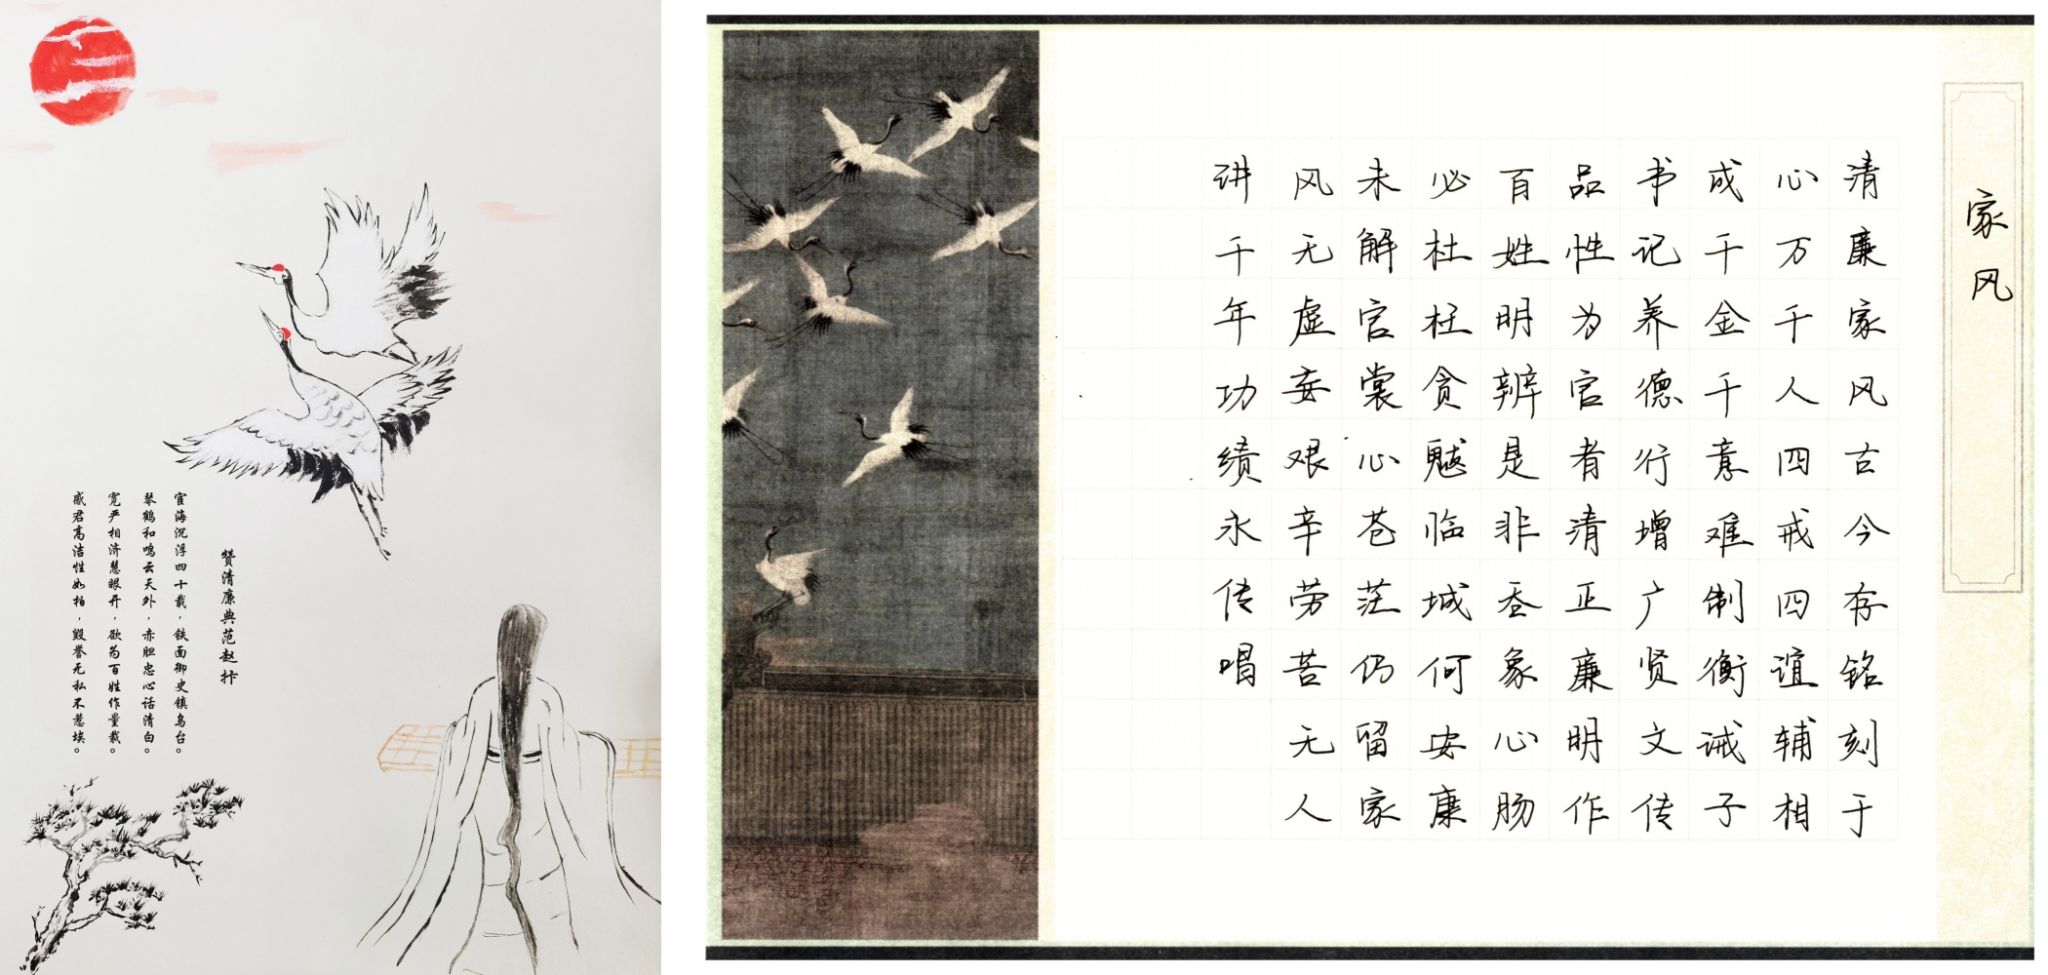 赞清廉典范赵抃
宦海沉浮四十载，铁面御史镇乌台。
琴鹤和鸣云天外，赤胆忠心话清白。
宽严相济慧眼开，欲为百姓作量裁。
感君高洁性如柏，毁誉无私不惹埃。
家风
清廉家风古今存铭刻于
心万千人四戒四谊辅相
成千金千意难制衡诫子
书记养德行增广贤文传
品性为官者清正廉明作
百姓明辨是非象心肠
必杜枉贪魃临城何安廉
未解官裳心苍茫仍留家
风无虚妄艰辛劳苦无人
讲千年功绩永传唱